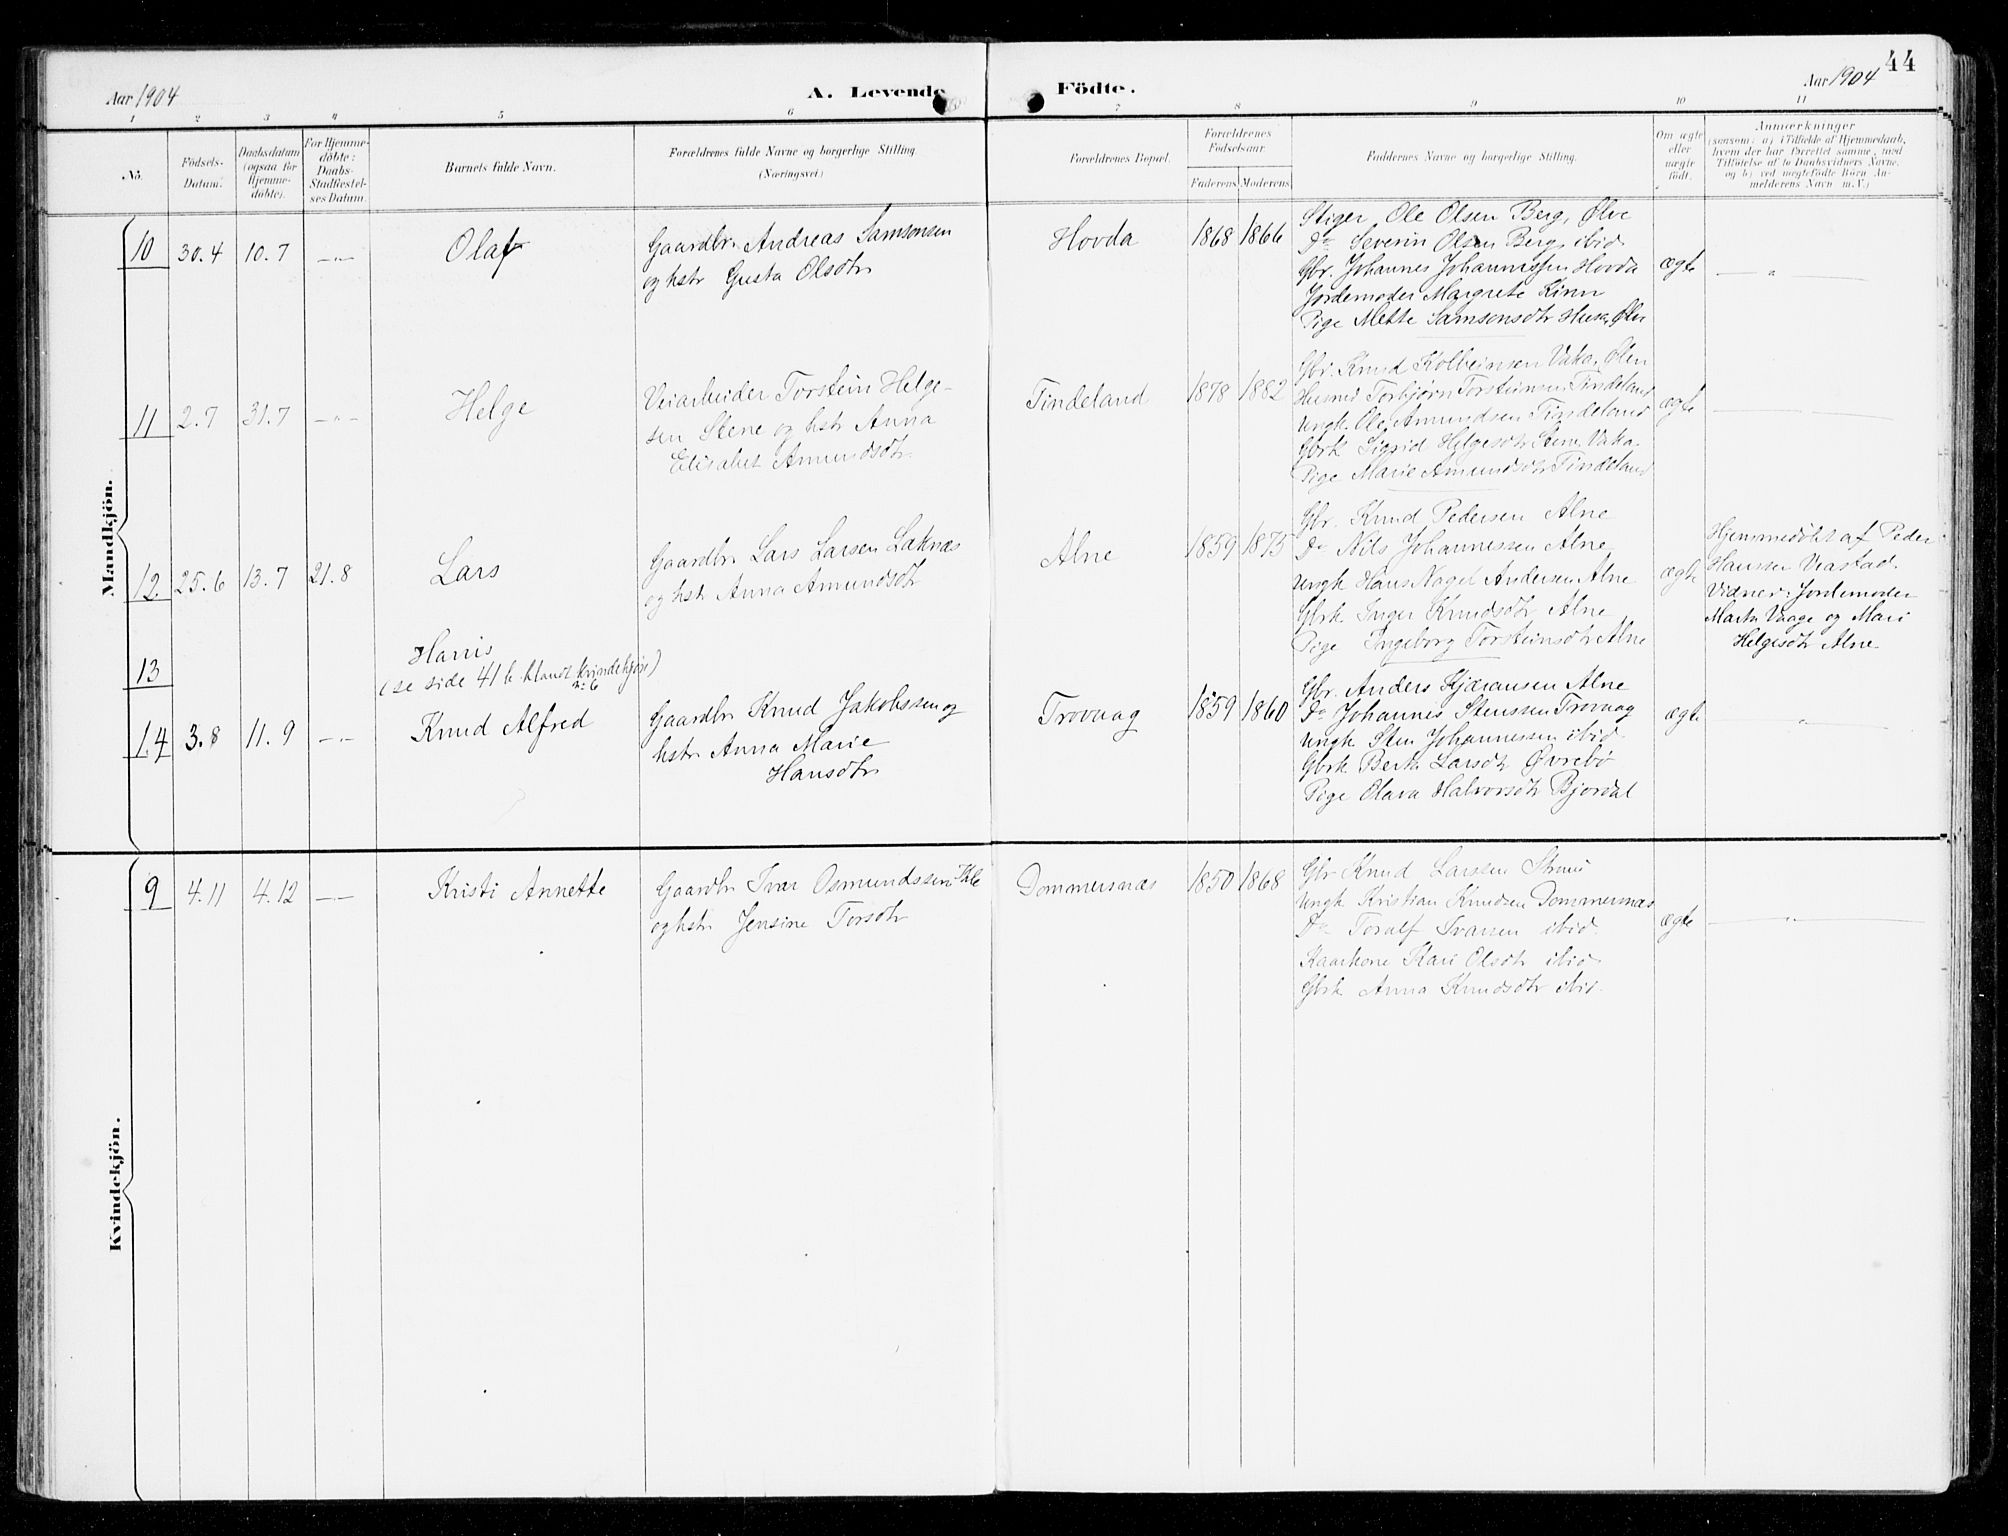 44
Aar 1904
A. Levende Födte.
Aar 1904
1 2 3 4 5 6 7 8 9 10 11
No.
Födsels-Datum.
Daabsdatum (ogsaa for Hjemme-döbte).
For Hjemme-döbte: Daabs-Stadfæstel-ses Datum.
Barnets fulde Navn.
Forældrenes fulde Navne og borgerlige Stilling (Næringsvei.)
Forældrenes Bopæl.
Forældrenes Födselsaar.
Faderens Moderens
Faddernes Navne og borgerlige Stilling.
Om ægte eller uægte födt.
Anmærkninger
(saasom: a) i Tilfælde af Hjemmedaab,
hvem der har forrettet samme, med
Tilföielse af to Daabsvidners Navne,
og b) ved uægtefödte Börn An-
melderens Navn m. V.)
Mandkjön.
10 30.4 10.7 —„— Olaf
Gaardbr. Andreas Samsonsen
og hstr Gusta Olsdtr
Hovda 1868 1866
Stiger Ole Olsen Berg, Ølve
Do Severin Olsen Berg, ibid
Gbr. Johannes Johannessen Hovda
Jordemoder Margrete Kinn
Pige Mette Samsonsdtr Husa, Ølve
ægte —„—
11 2.7 31.7 —„— Helge
Veiarbeider Torstein Helge-
sen Stene og hstr Anna
Elisabet Amundsdtr.
Tindeland 1878 1882
Gbr. Knud Kolbeinsen Vaka, Ølen
Husmd Torbjørn Torsteinsen Tindeland
Ungk. Ole Amundsen Tindeland
Gbrk Sigrid Helgesdtr Stene, Vaka
Pige Marie Amundsdtr Tindeland
ægte
12. 25.6 13.7 21.8 Lars
Gaardbr Lars Larsen Laknæs
og hstr Anna Amundsdtr
Alne 1859 1875
Gbr. Knud Pedersen Alne
Do Nils Johannessen Alne
Ungk Hans Nagel Andersen Alne
Gbrk Inger Knudsdtr Alne
Pige Ingeborg Torsteinsdtr Alne
ægte
Hjemmedøbt af Peder
Hanssen Vrastad.
Vidner: Jordemoder
Marta Vaage og Mari
Helgesdtr Alne
13 Harris
(se side 41 b. blandt kvindekjøn)
n: 6
14 3.8 11.9 —„— Knud Alfred
Gaardbr Knud Jakobssen og
hstr Anna Marie
Hansdtr
Trovaag 1859 1860
Gbr. Anders Kjæransen Alne
Do Johannes Stenssen Trovaag
Ungk Sten Johannessen ibid
Gbrk Berta Larsdtr Øvrebø
Pige Olava Halvorsdtr Bjordal
ægte —„—
Kvindekjön.
9 4.11 4.12 —„— Kristi Annette
Gaardbr Ivar Osmundssen
og hstr Jensine Torsdtr
Dommersnæs 1850 1868
Gbr Knud Larssen
Ungk Kristian Knudsen Dommersnæs
Do Toralf Ivarsen ibid.
Kaarkone Kari Olsdtr ibid
Gbrk Anna Knudsdtr ibid.
ægte —„—